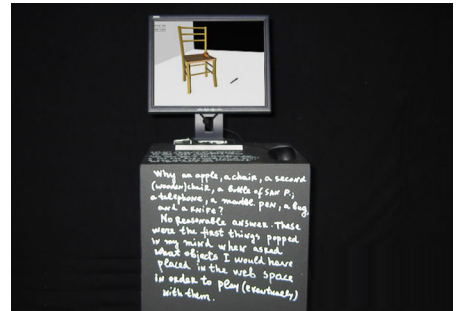 Why an apple, a chair, a second
(wooden) chair, a bottle of SAN P.;
a telephone, a montbl. PEN, a bug,
and a KNIFE?
No Reasonable answer. These
were the first things popped
in my mind when asked
what objects I would have
placed in the web space
in order to play (eventually)
with them.